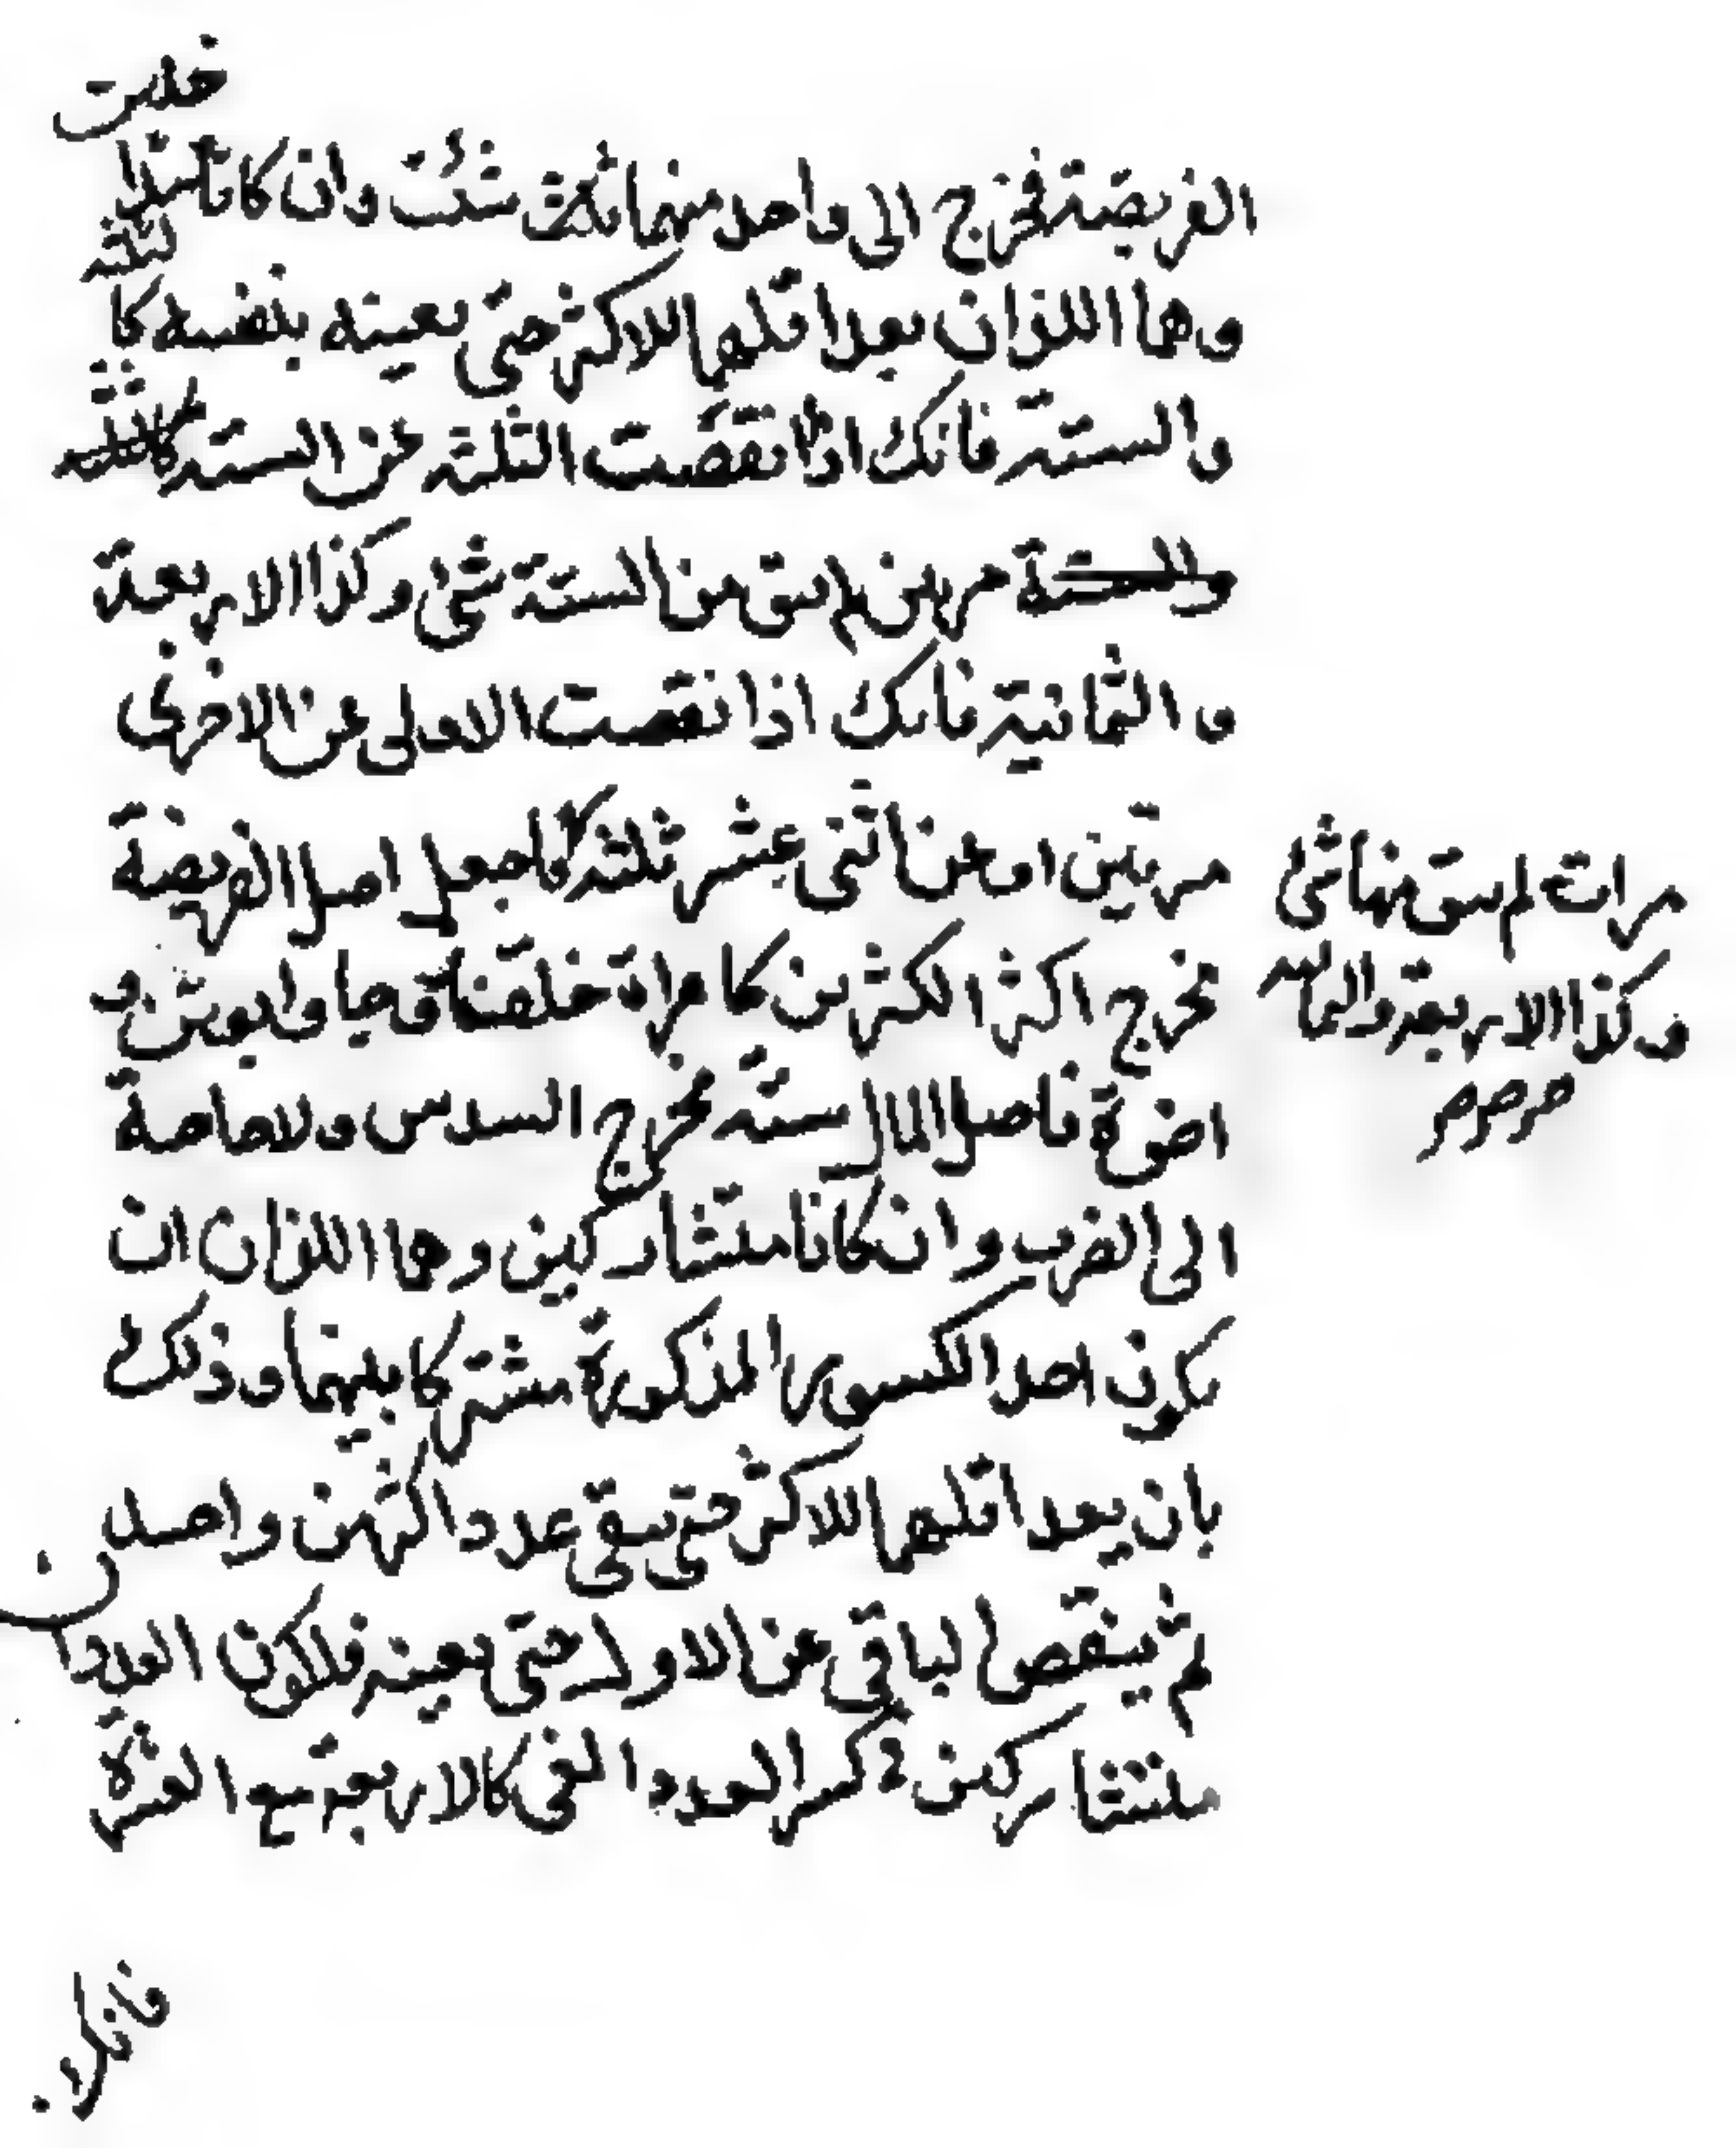 الفريضة مخرج اي واحد منهما شئت وان كانا متداخلين
وهما اللذان يعد اقلهما الاكثر حتى يفنيه بنفسه كالثلثة
والستة فانك اذا نقصت الثلثة من الستة
مرتين لم يبق من الستة شئ وكذا الاربعة
والثمانية فانك اذا نقصت الاولى من الاخرى
مرتين او من اثني عشر ثلثة فاجعل اصل الفريضة
مخرج اكثر الكسرين كامراة خلفت زوجا وابوين و
اخوة فاصل المال ستة مخرج السدس ولا حاجة
الى الضرب وان كانا متشاركين وهما اللذان ان
يكون احد الكسور المذكورة مشتركا بينهما وذلك
بان يعد اقلهما الاكثر حتى يبقى عدد اكثر من واحد
ثم ينقص الباقي من الاول حتى يفنيه فيكون العددان
متشاركين في كسر العدد المفني كالاربعة مع العشرة
مرات لم يبق منها شئ
وكذا الاربعة والثمانية
فانك اذ